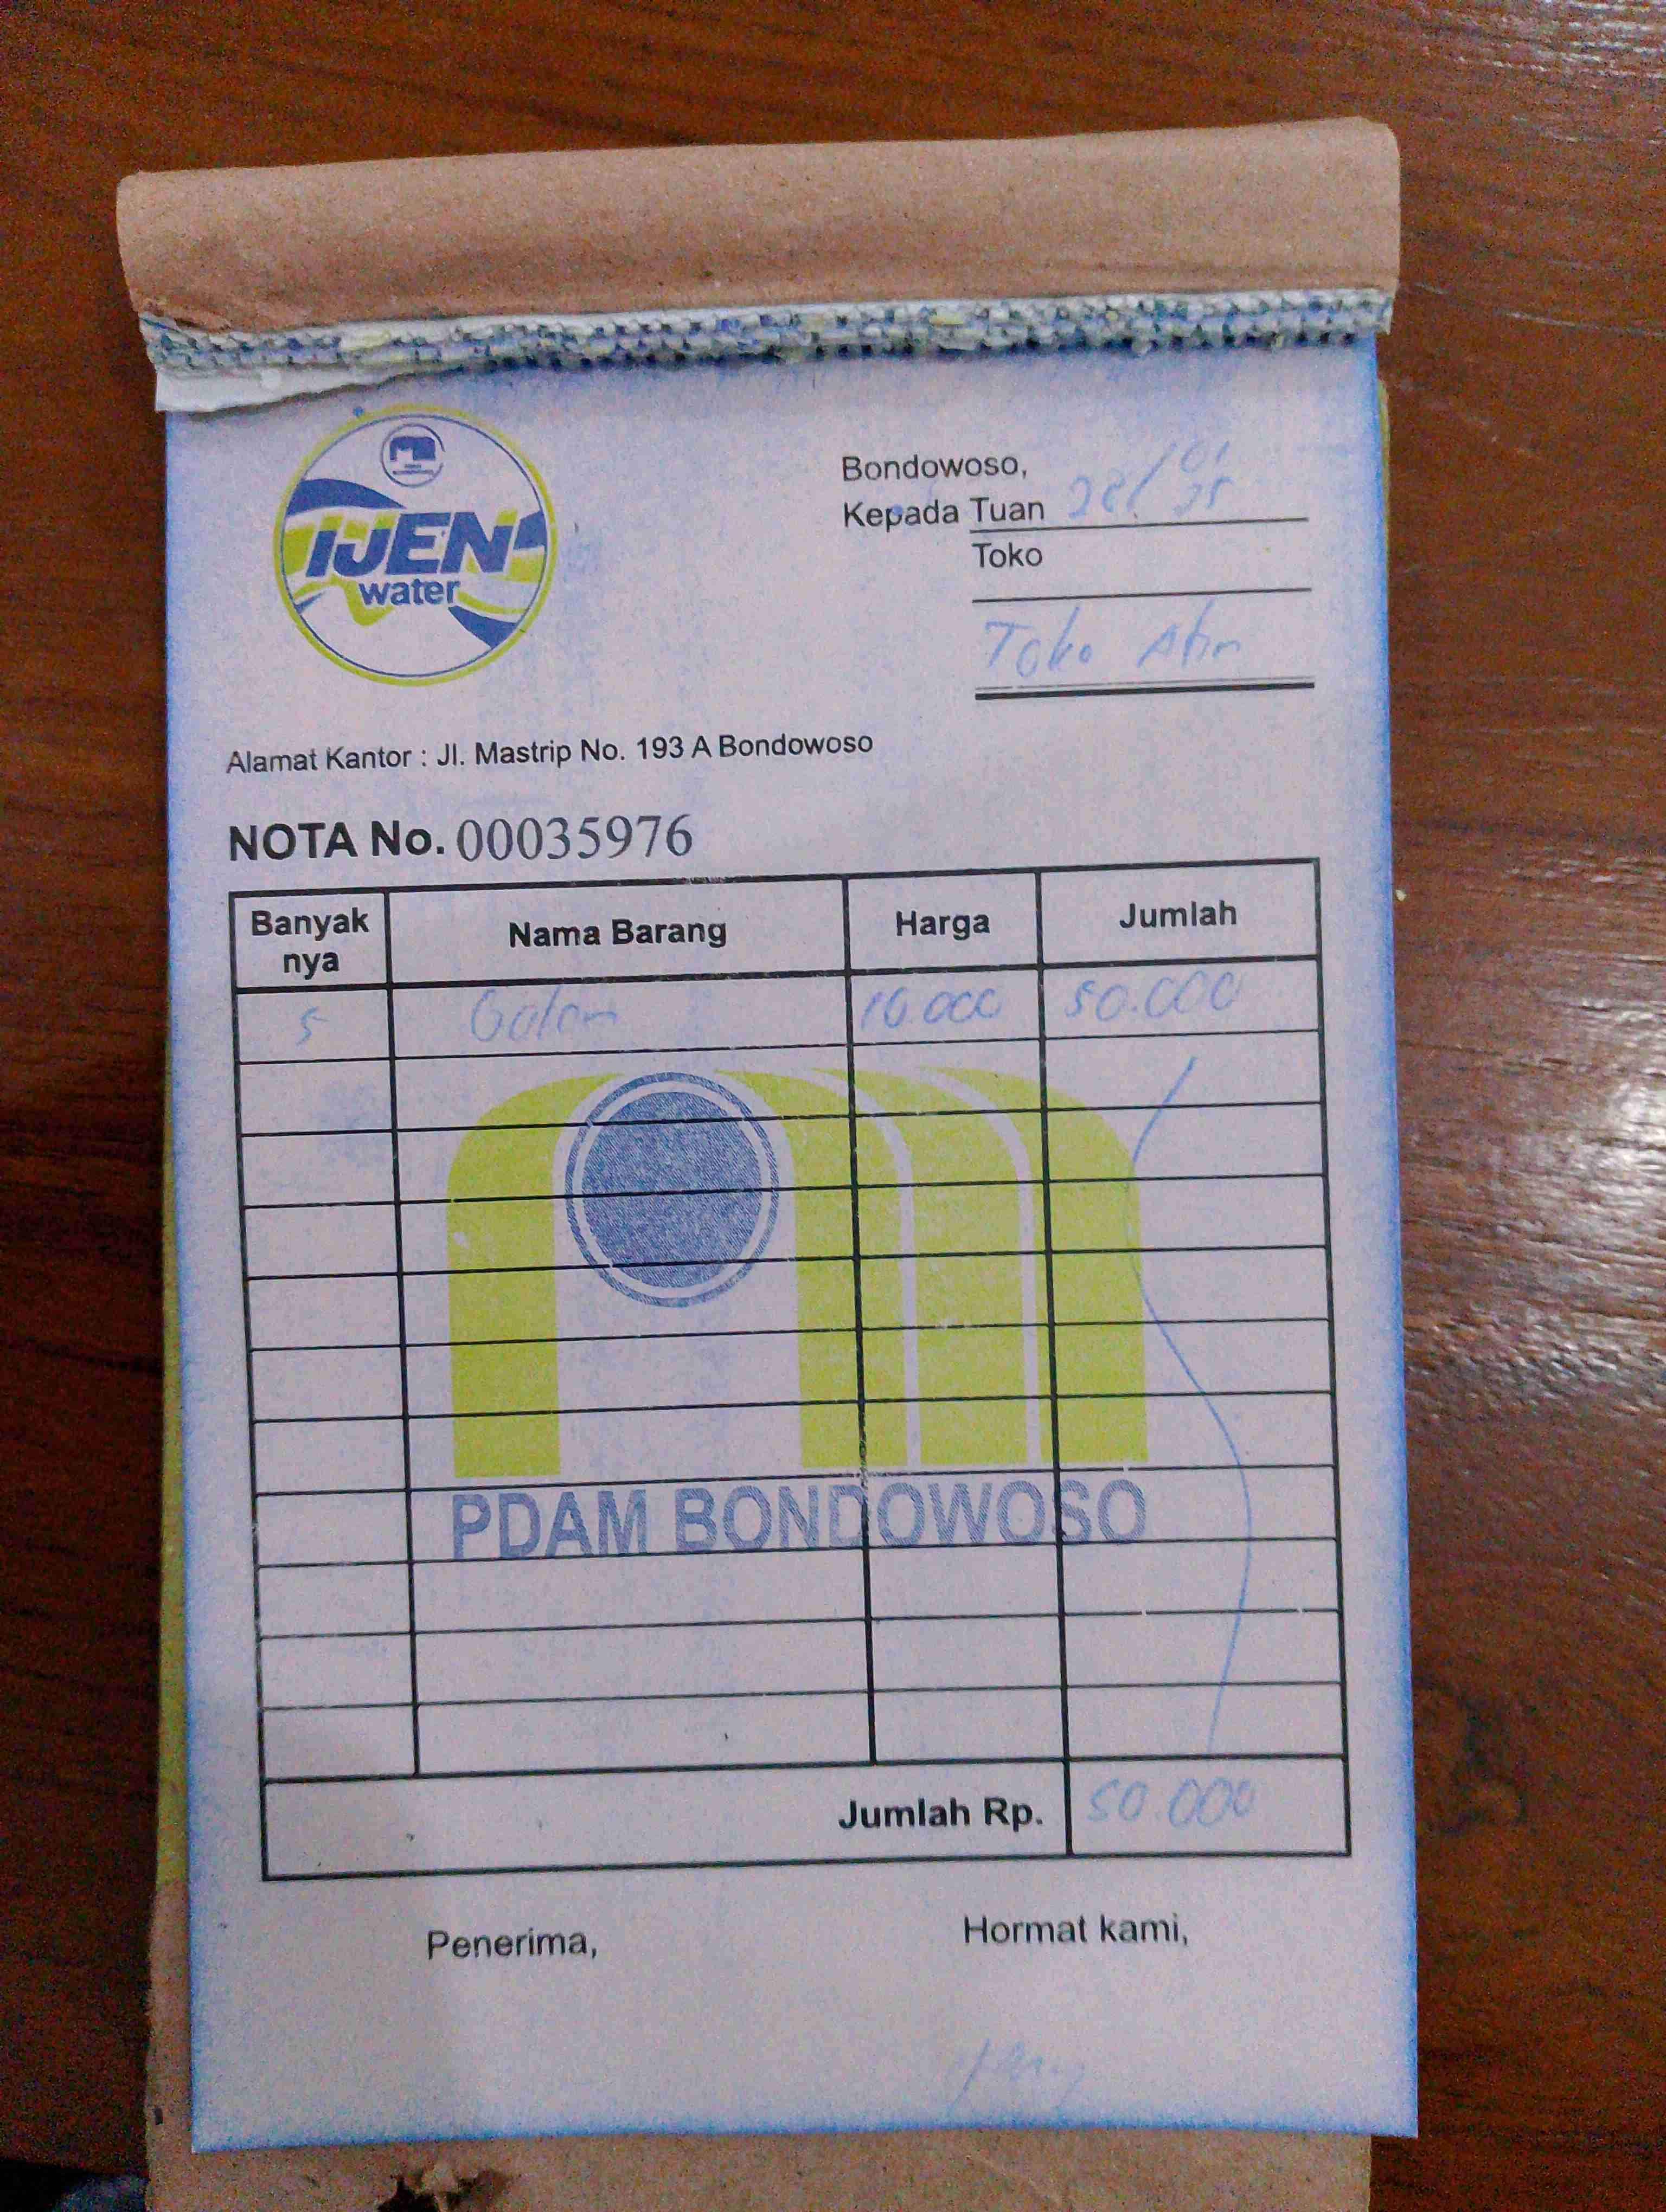 IJEN
water
Bondowoso, 28/01 25
Kepada Tuan
Toko
Toko
Alamat Kantor : Jl. Mastrip No. 193 A Bondowoso
NOTA No. 00035976
Banyak nya Nama Barang Harga Jumlah
5 Galon 10.000 50.000
PDAM BONDOWOSO
Jumlah Rp. 50.000
Penerima, Hormat kami,